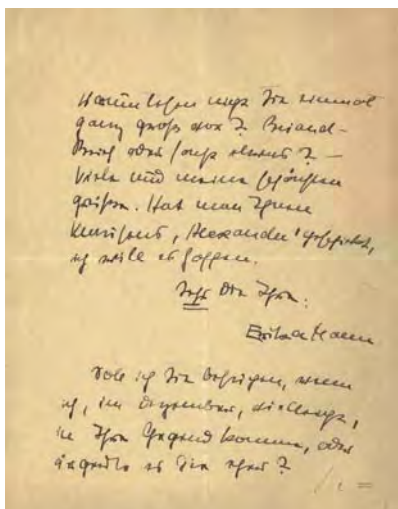 Warum lesen nicht Sie einmal
ganz groß vor? Briand-
oder sonst etwas? —
Viele und meine schönsten
Grüße. Hat man Ihnen
Klausens „Alexander" geschickt,
ich will es hoffen.
Sehr die Ihre:
Erika Mann
Soll ich Sie besuchen, wenn
ich, im Dezember, vielleicht,
in Ihre Gegend komme, oder
es Sie eher?